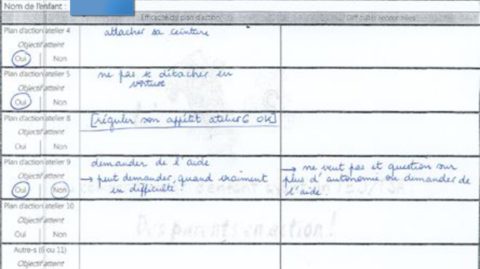 Nom de l'enfant :
Efficacité du plan d'action
Difficultés rencontrées
Plan d'action atelier 4
attacher sa ceinture
Objectif atteint
Oui Non
Plan d'action atelier 5
ne pas se détacher en
voiture
Objectif atteint
Oui Non
Plan d'action atelier 8
[réguler son appétit atelier 6 OK]
Objectif atteint
Oui Non
Plan d'action atelier 9
demander de l'aide
→ ne veut pas et question sur
Objectif atteint
→ peut demander, quand vraiment
plus d'autonomie, ou demander de
Oui Non
en difficulté.
l'aide.
Plan d'action atelier 10
Objectif atteint
Des parents en action !
Oui Non
Autre-s (6 ou 11)
Objectif atteint